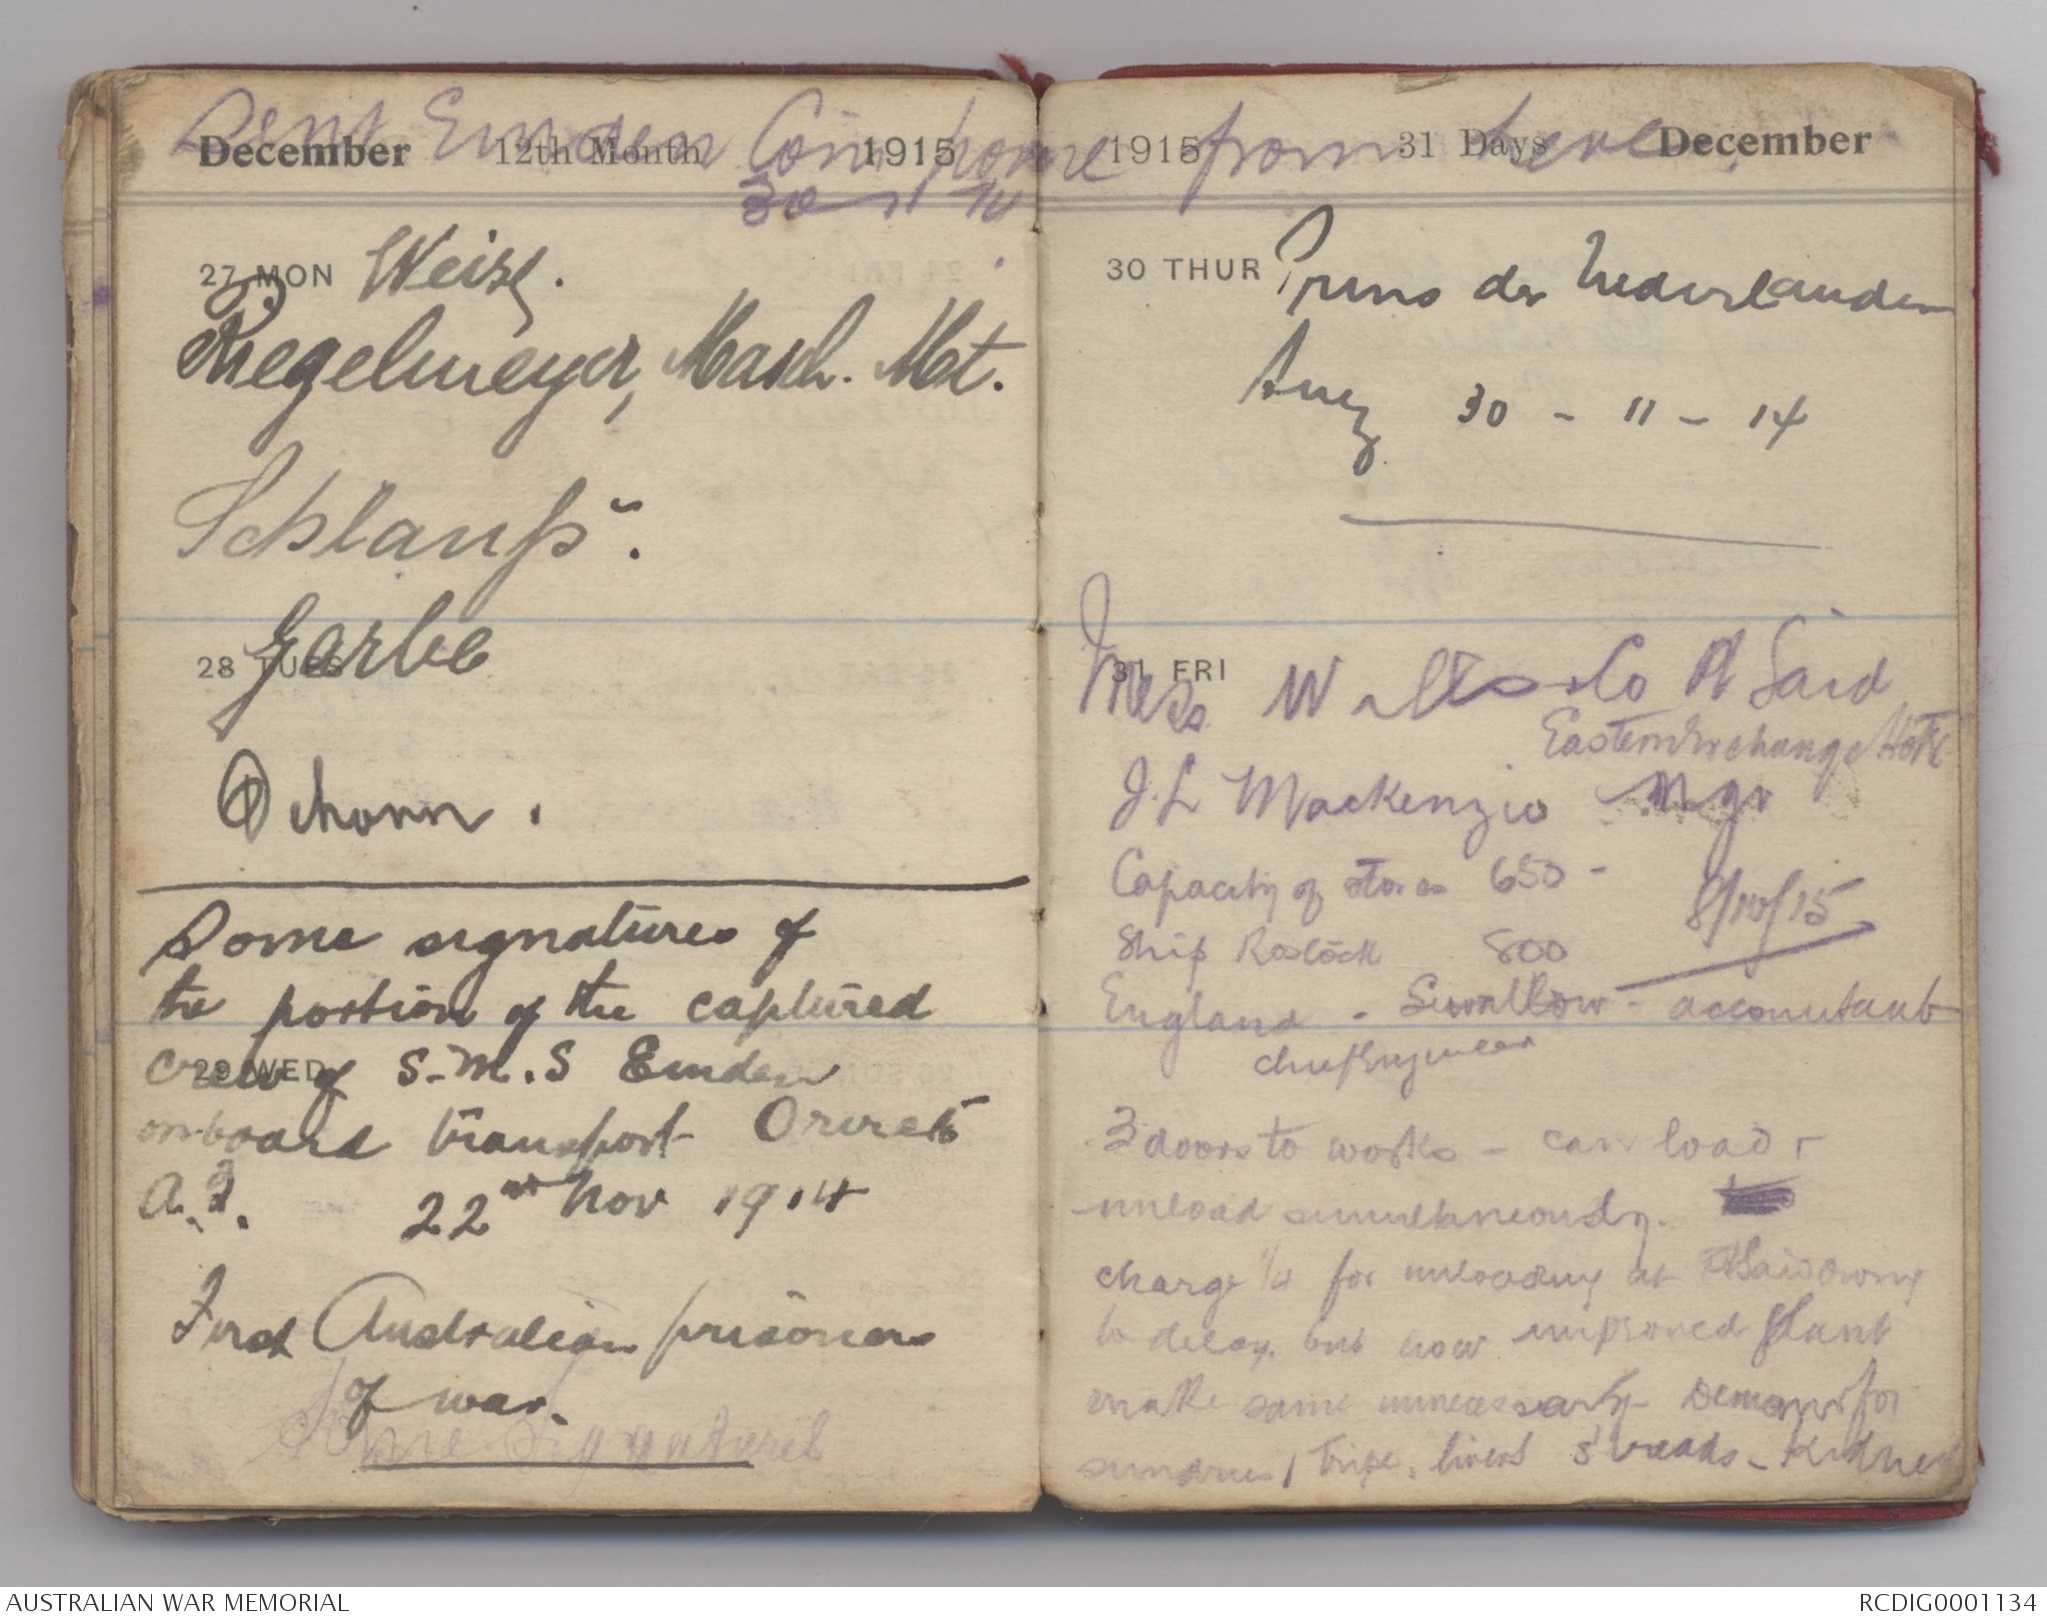 Sent Emden Coin home from here.
December 12th Month 1915
30 11 14
27 MON Weisz.
Riegelmeyer, Masch. Mt.
Schlauß.
28 TUES Garbe
Schonn.
Some signatures of
the portion of the captured
29 WED
crew of S.M.S Emden
on board transport Orvieto
A.I. 22nd Nov 1914
First Australian prisoners
of war.
Some Signatures
1915 31 Days December
30 THUR Prins der Nederlanden
Suez 30 - 11 - 14
31 FRI
Mess Wills & Co Pt Said
Eastern Exchange Hotel
J. L Mackenzie Mgr
Capacity of stores 650 -
8/10/15
Ship Rostock 800
England - Swallow - accountant
chief Engineer
3 doors to works - can load &
unload simultaneously.
charge 1/4 for unloading at Pt Said owing
to delay. but now improved plant
make same unnecessary - Demand for
sundries, tripe, livers S'breads - Kidney
AUSTRALIAN WAR MEMORIAL
RCDIG0001134